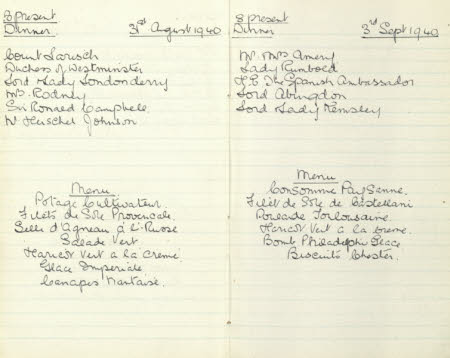 8 present
Dinner 31st August 1940
Count Larisch
Duchess of Westminster
Lord Lady Londonderry
Mrs. Rodney
Sir Ronald Campbell
Mr Herschel Johnson
Menu
Potage Cultivateur
Filets de Sole Provencale.
Selle d'Agneau à l'
Salade Vert
Haricot Vert a la Creme
Glace Imperiale
Canapes Nantaise.
8 present
Dinner 3rd Sept 1940
Mr Mrs Amery
Lady Rumbold
H.E. The Spanish Ambassador
Lord Abingdon
Lord Lady Kemsley
Menu
Consomme Paysenne.
Filet de Sole de Castellani
Poularde Toulousaine
Haricot Vert a la creme.
Bomb Philadelphi Glace
Biscuits Chester.